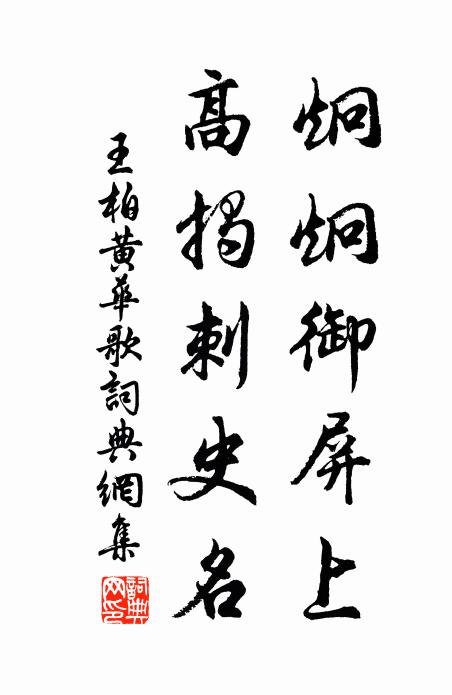 炯炯御屏上
高揭刺史名
王柏黃華歌詞典網集
詞典網印